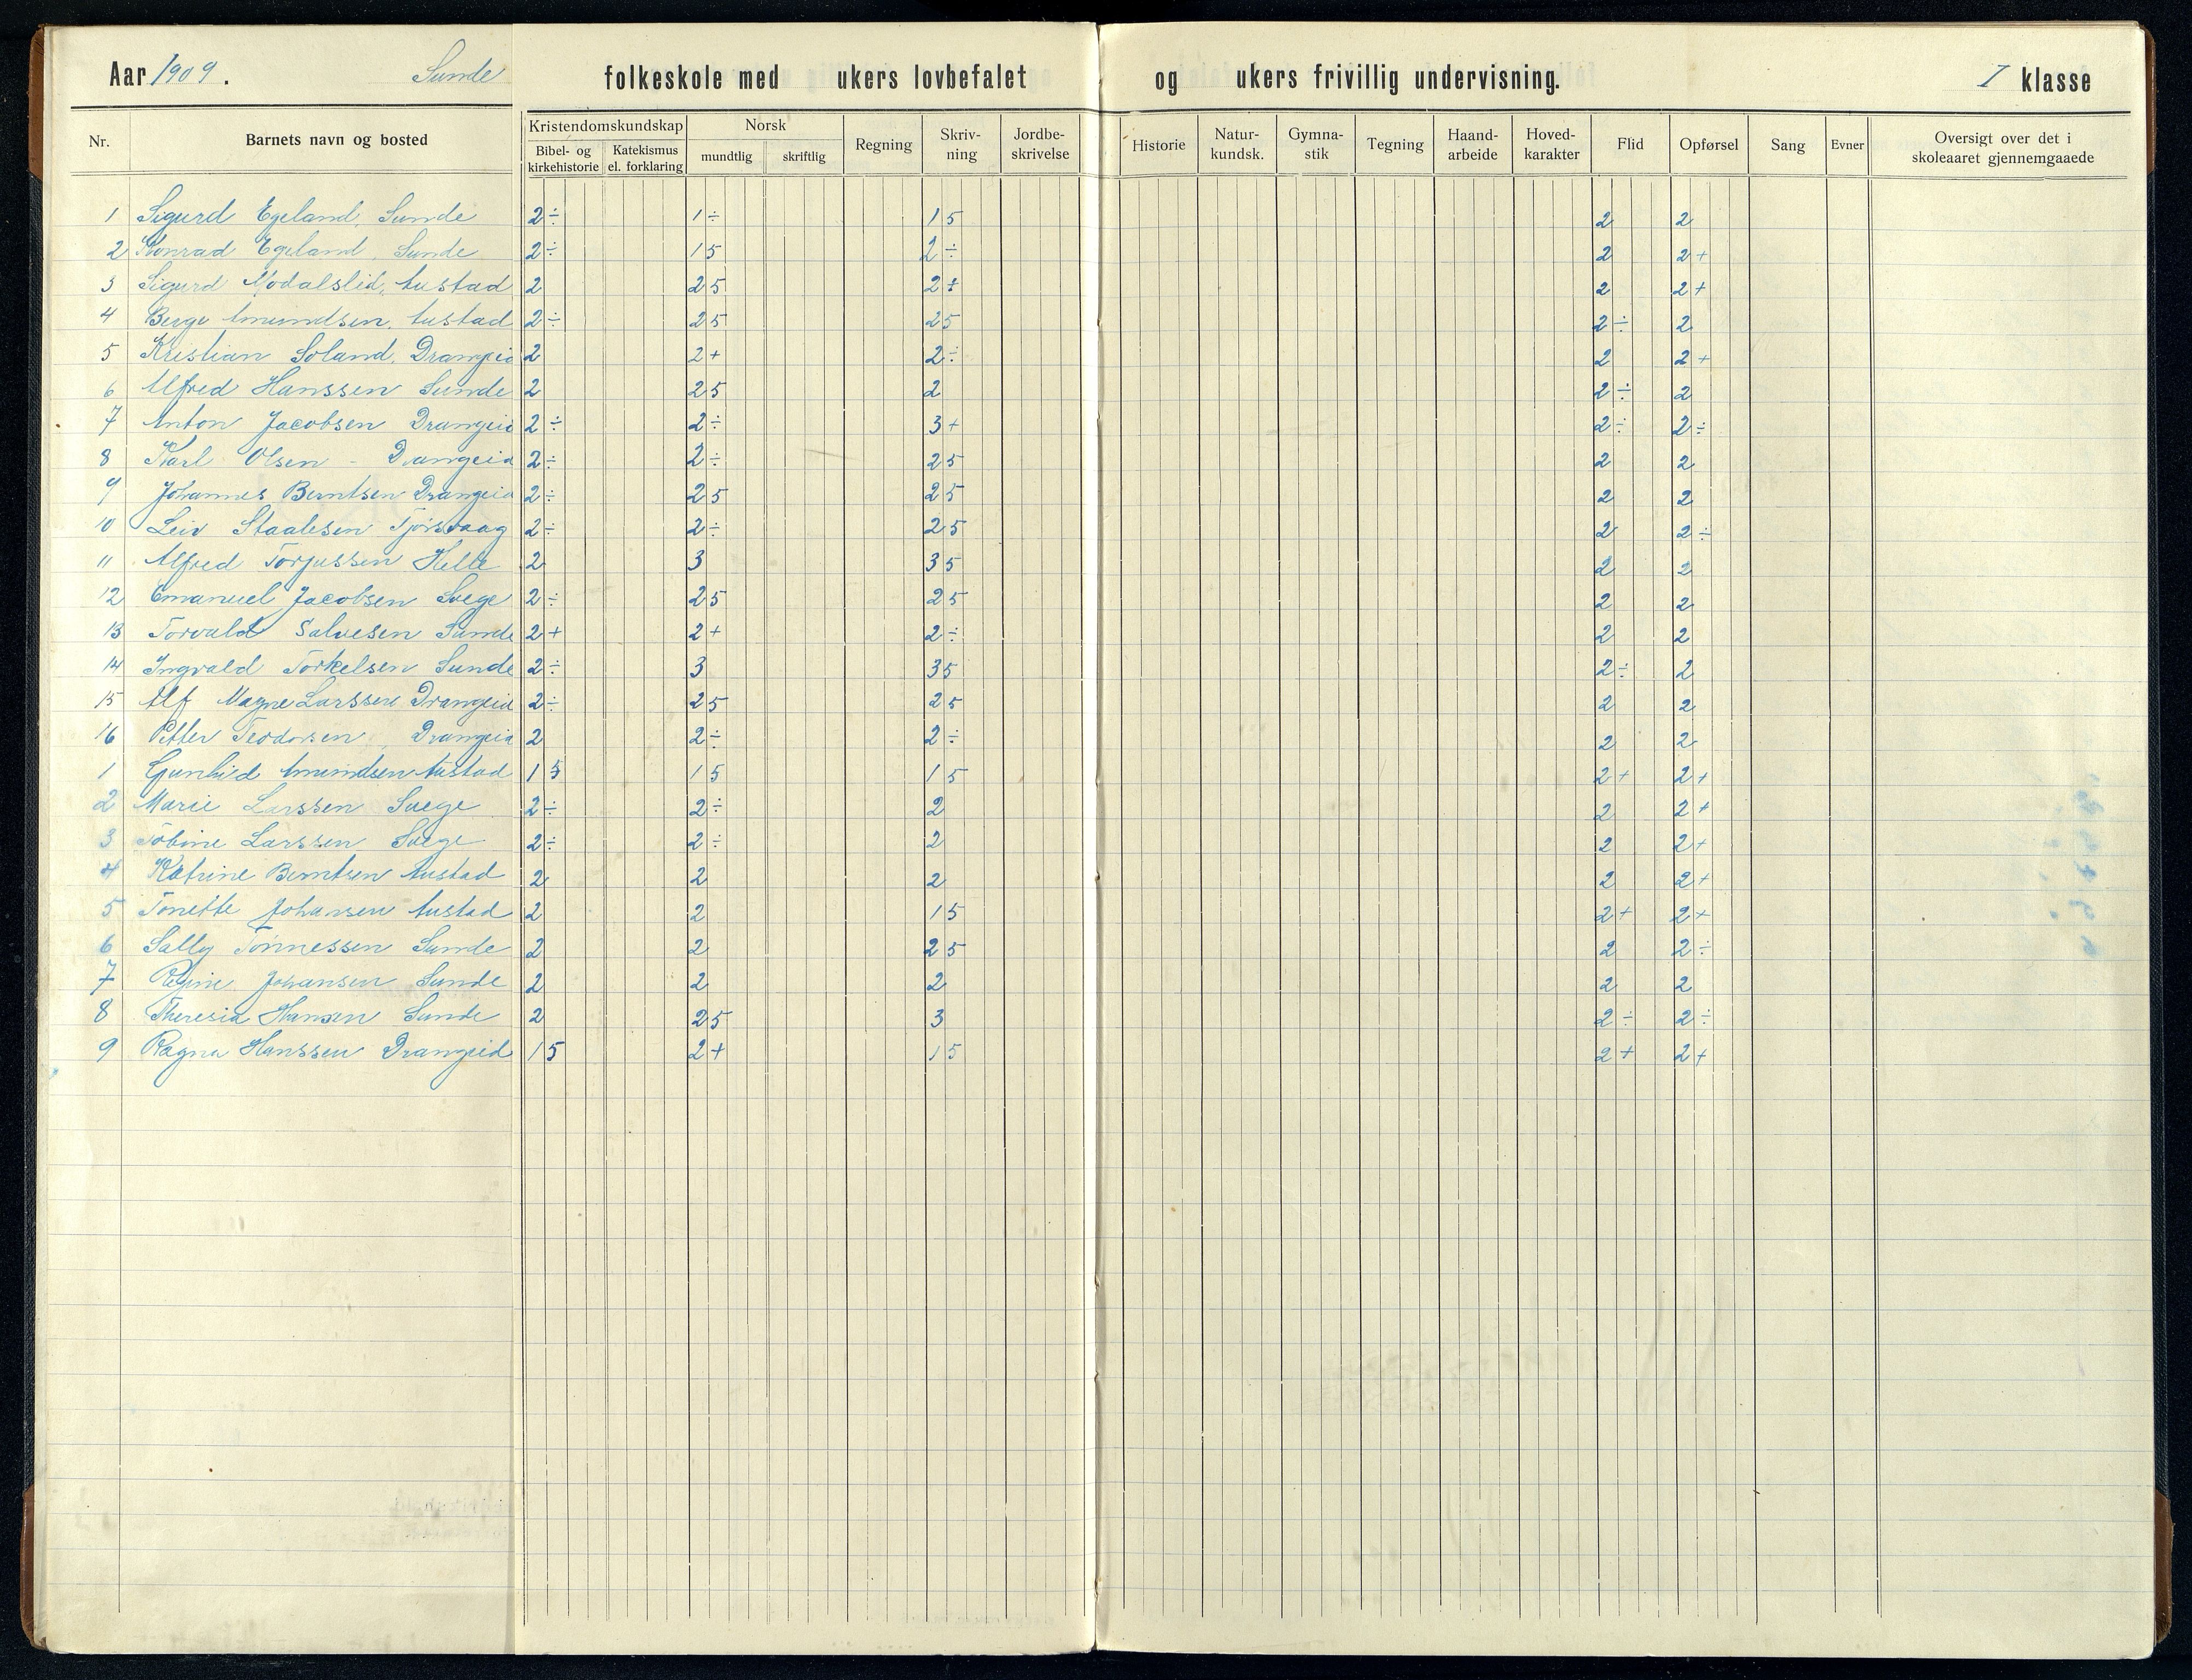 Aar 1909. Sunde folkeskole med ukers lovbefalet og ukers frivillig undervisning. I klasse
Nr. Barnets navn og bosted Kristendomskundskap Bibel- og kirkehistorie Katekismus el. forklaring Norsk mundtlig skriftlig Regning Skriv-ning Jordbe-skrivelse Historie Natur-kundsk. Gymna-stik Tegning Haand-arbeide Hoved-karakter Flid Opførsel Sang Evner Oversigt over det i skoleaaret gjennemgaaede
1 Sigurd Egeland, Sunde 2÷ 1÷ 15 2 2
2 Konrad Egeland, Sunde 2÷ 15 2÷ 2 2+
3 Sigurd Nödalslid, Austad 2 25 2+ 2 2+
4 Berge Amundsen, Austad 2÷ 25 25 2÷ 2
5 Kristian Soland, Drangeid 2 2+ 2÷ 2 2+
6 Alfred Hanssen Sunde 2 25 2 2÷ 2
7 Anton Jacobsen Drangeid 2÷ 2÷ 3+ 2÷ 2÷
8 Karl Olsen - Drangeid 2÷ 2÷ 25 2 2
9 Johannes Berntsen Drangeid 2÷ 25 25 2 2
10 Leiv Staalesen Tjörsvaag 2÷ 2÷ 25 2 2÷
11 Alfred Torjussen Helle 2 3 35 2 2
12 Emanuel Jacobsen Svege 2÷ 25 25 2 2
13 Torvald Salvesen Sunde 2+ 2+ 2÷ 2 2
14 Ingvald Torkelsen Sunde 2÷ 3 35 2÷ 2
15 Alf Magne Larssen Drangeid 2÷ 25 25 2 2
16 Petter Teodorsen, Drangeid 2 2÷ 2÷ 2 2
1 Gunhild Amundsen Austad 15 15 15 2+ 2+
2 Marie Larssen Svege 2÷ 2÷ 2 2 2+
3 Tobine Larssen Svege 2÷ 2÷ 2 2 2+
4 Katrine Berntsen Austad 2 2 2 2 2+
5 Tonette Johansen Austad 2 2 15 2+ 2+
6 Sally Tönnessen Sunde 2 2 25 2 2÷
7 Regine Johansen Sunde 2 2 2 2 2
8 Theresia Hansen Sunde 2 25 3 2÷ 2÷
9 Ragna Hanssen Drangeid 15 2+ 15 2+ 2+